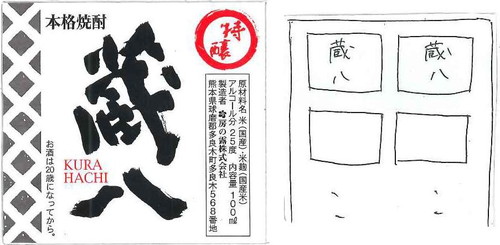 本格焼酎
特醸
蔵八
KURA
HACHI
お酒は20歳になってから。
原材料名 米(国産)・米麹(国産米)
アルコール分 25度 内容量 100ml
製造者 房の露株式会社
熊本県球磨郡多良木町多良木568番地
蔵
八
蔵
八